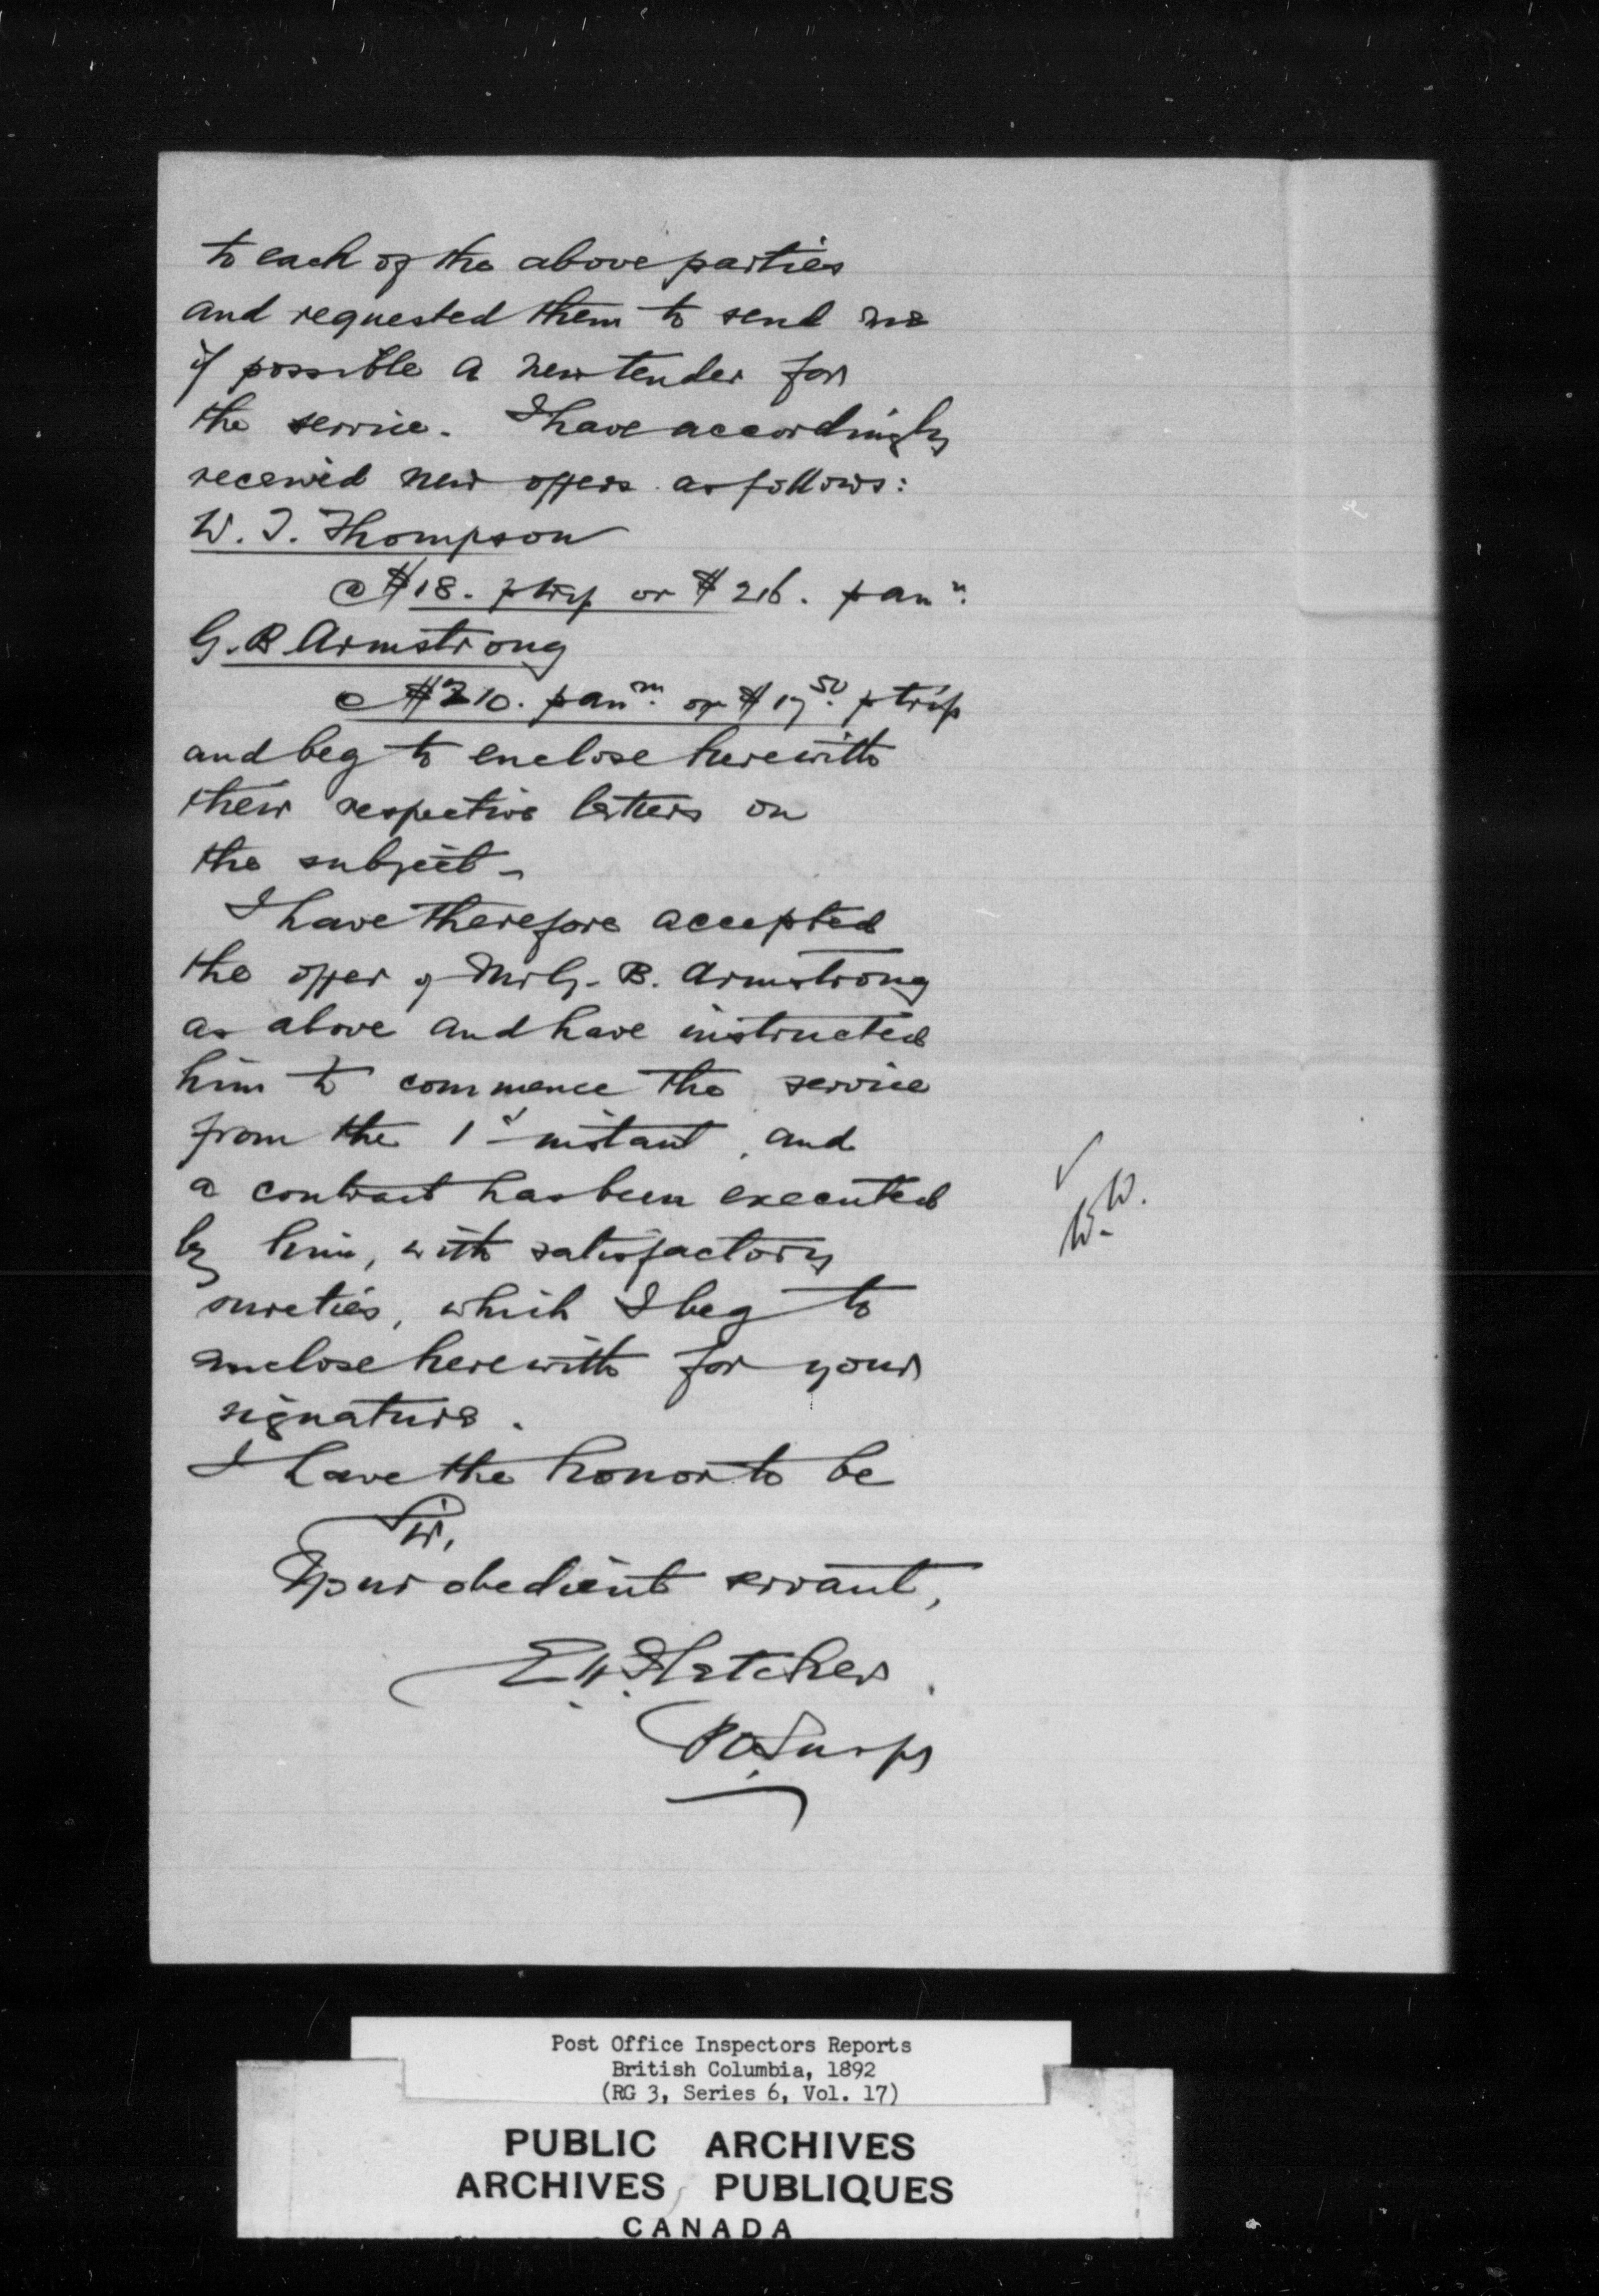 to each of the above parties
and requested them to send me
if possible a new tender for
the service. I have accordingly
received new offers as follows:
W. T. Thompson
@ $18. p trip or $216. p an^m.
G. B. Armstrong
@ $210. p an^m. or $17^50. p trip
and beg to enclose herewith
their respective letters on
the subject -
I have therefore accepted
the offer of Mr G. B. Armstrong
as above and have instructed
him to commence the service
from the 1st instant, and
a contract has been executed
by him, with satisfactory
sureties, which I beg to
enclose herewith for your
signature.
I have the honor to be
Sir,
Your obedient servant,
E. H. Fletcher.
P.O. Inspr
✓
W.W.
Post Office Inspectors Reports
British Columbia, 1892
(RG 3, Series 6, Vol. 17)
PUBLIC ARCHIVES
ARCHIVES PUBLIQUES
CANADA